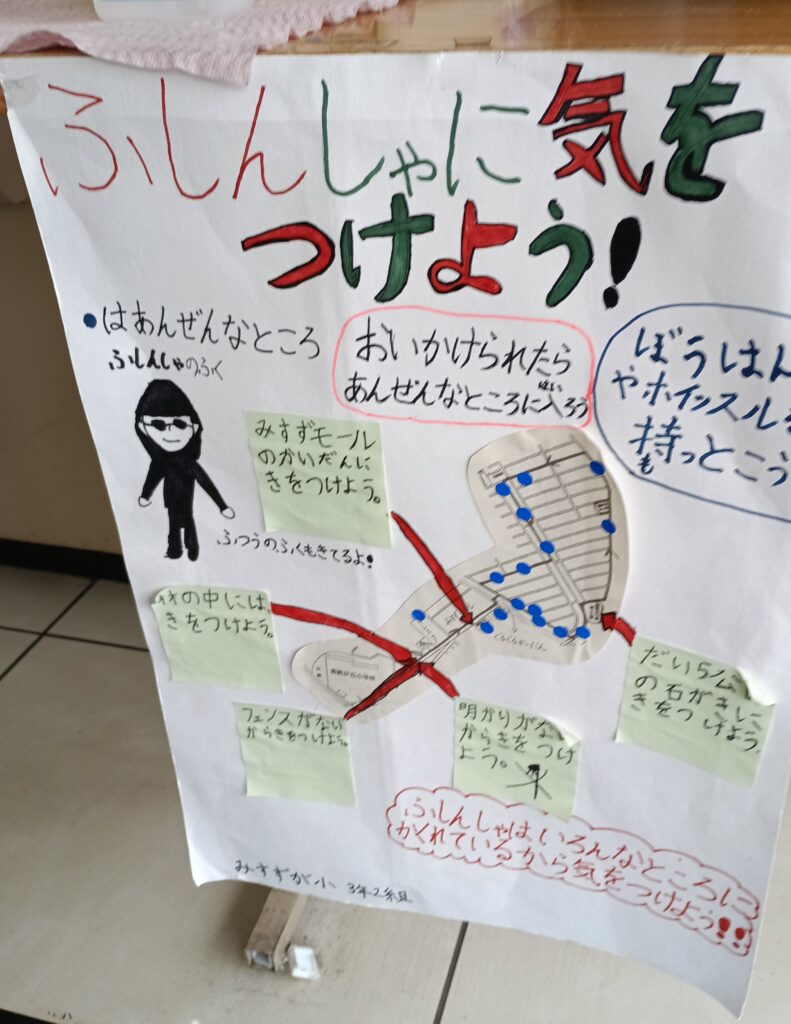 ふしんしゃに気を
つけよう!
●はあんぜんなところ
ふしんしゃのふく
おいかけられたら
あんぜんなところに入ろう
はい
ぼうはん
やホイッスルを
持っとこう
も
みすずモール
のかいだんに
きをつけよう。
ふつうのふくもきてるよ!
林の中には、
きをつけよう。
くるくるかいだん
美鈴が丘小学校
フェンスがない
からきをつけよう。
明かりがない
からきをつけ
よう。
だい5公
の石がきに
きをつけよう。
ふしんしゃはいろんなところに
かくれているから気をつけよう!!
みすずが小 3年2組